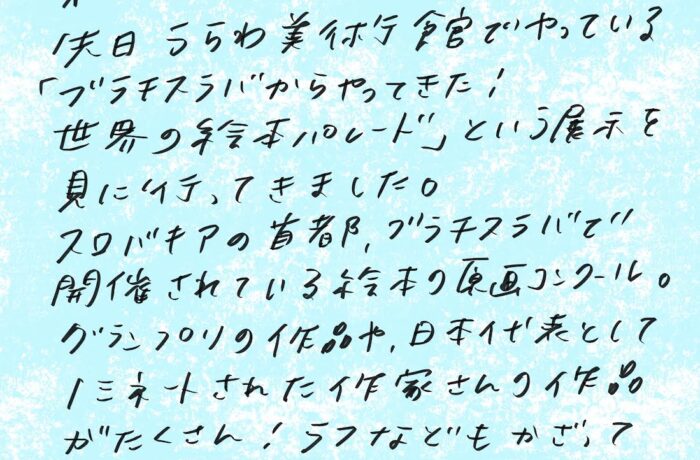 先日 うらわ美術館でやっている
「ブラチスラバからやってきた!
世界の絵本パレード」という展示を
見に行ってきました。
スロバキアの首都、ブラチスラバで
開催されている絵本の原画コンクール。
グランプリの作品や、日本代表として
ノミネートされた作家さんの作品
がたくさん!ラフなどもかざって